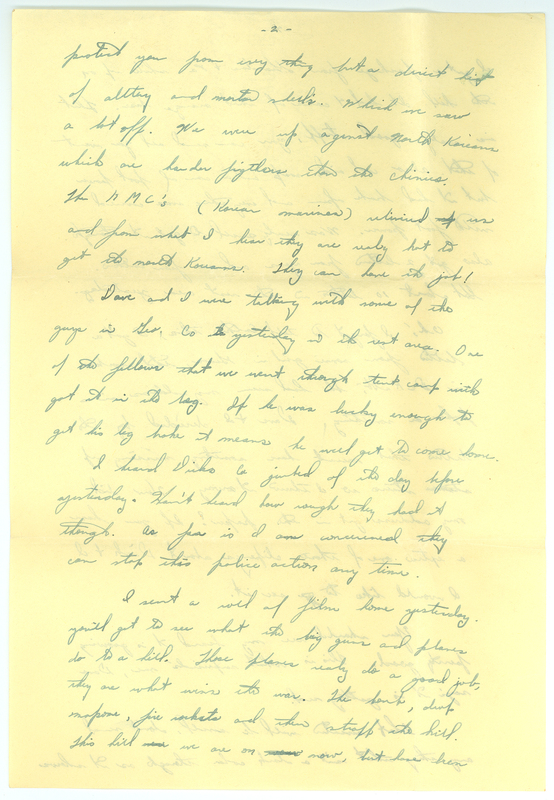 - 2 -
protect you from every thing but a direct hit
of alttery and mortar shells. Which we saw
a lot off. We were up against North Koreans
which are harder figthers than the chinies.
The K M C's (Korean marines) releived us
and from what I hear they are realy hot to
get the north Koreans. They can have the job!
Dave and I were talking with some of the
guys in Geo. Co yesterday in the rest area. One
of the fellows that we went through tent camp with
got it in the leg. If he was lucky enough to
get his leg broke it means he will get to come home.
I heard Dicks Co jumped of the day before
yesterday. Han't heard how rough they had it
though. As far is I am concerned they
can stop this police action any time.
I sent a roll of film home yesterday.
you'll get to see what the big guns and planes
do to a hill. Those planes realy do a good job,
they are what wins the war. The bomb, drop
napone, fire rockets and then straff the hill.
This hill we are on now, but have been